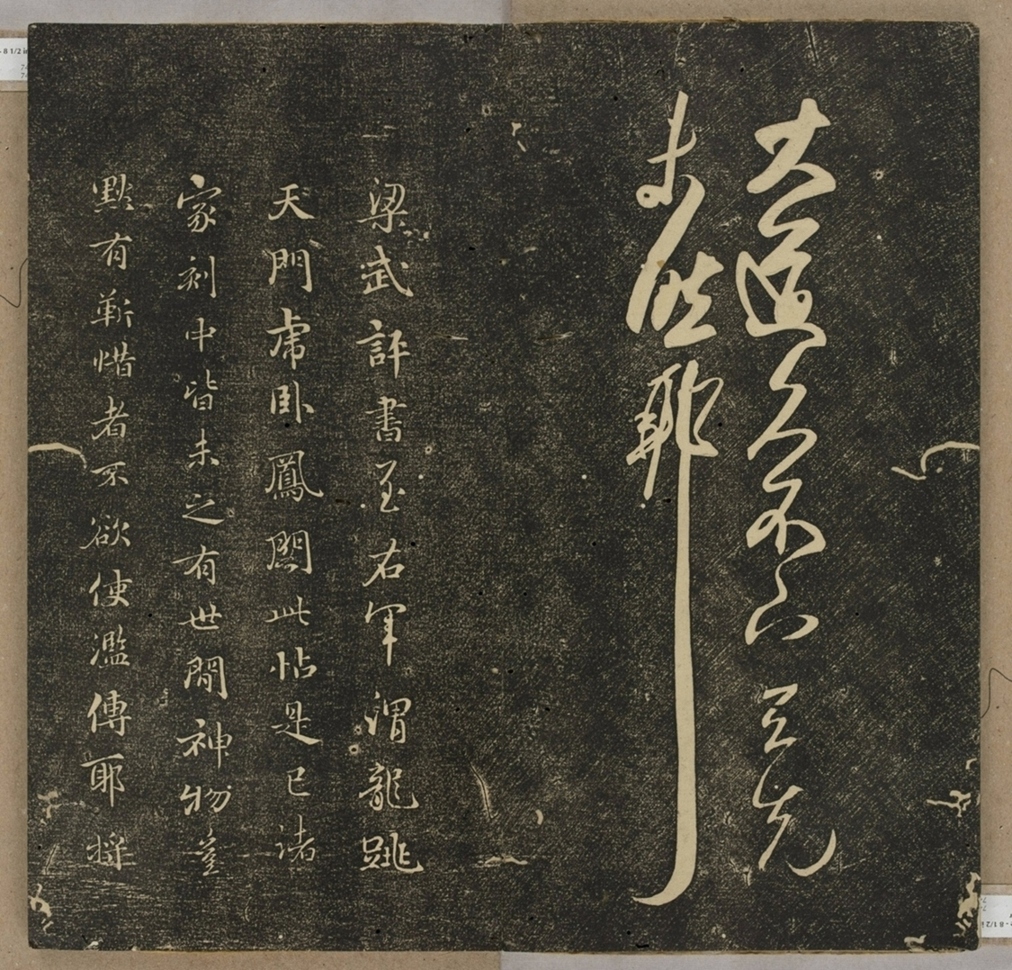 大道久不下与先
未然耶
梁武評書至右軍謂龍跳
天門虎臥鳳闕此帖是已諸
家刻中皆未之有世間神物豈
黙有靳惜者不欲使濫傳耶